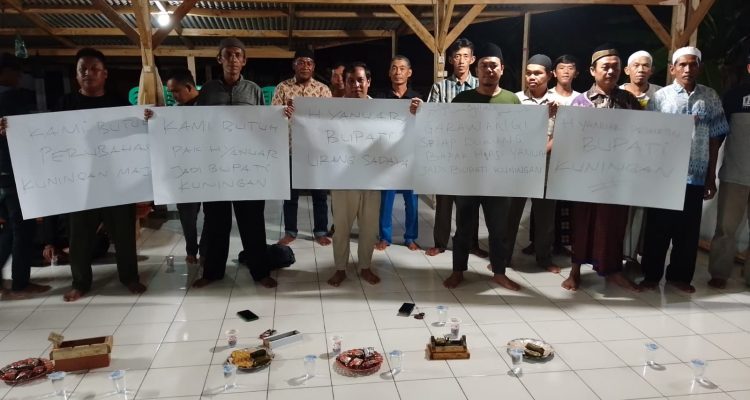 KAMI BUTUH
PERUBAHAN
KUNINGAN MAJU
KAMI BUTUH
PAK H YANUAR
JADI BUPATI
KUNINGAN
H YANUAR
BUPATI
URANG SADAYA
GARAWANGI
SIAP DUKUNG
BAPAK H YANUAR
JADI BUPATI KUNINGAN
H YANUAR
BUPATI
KUNINGAN